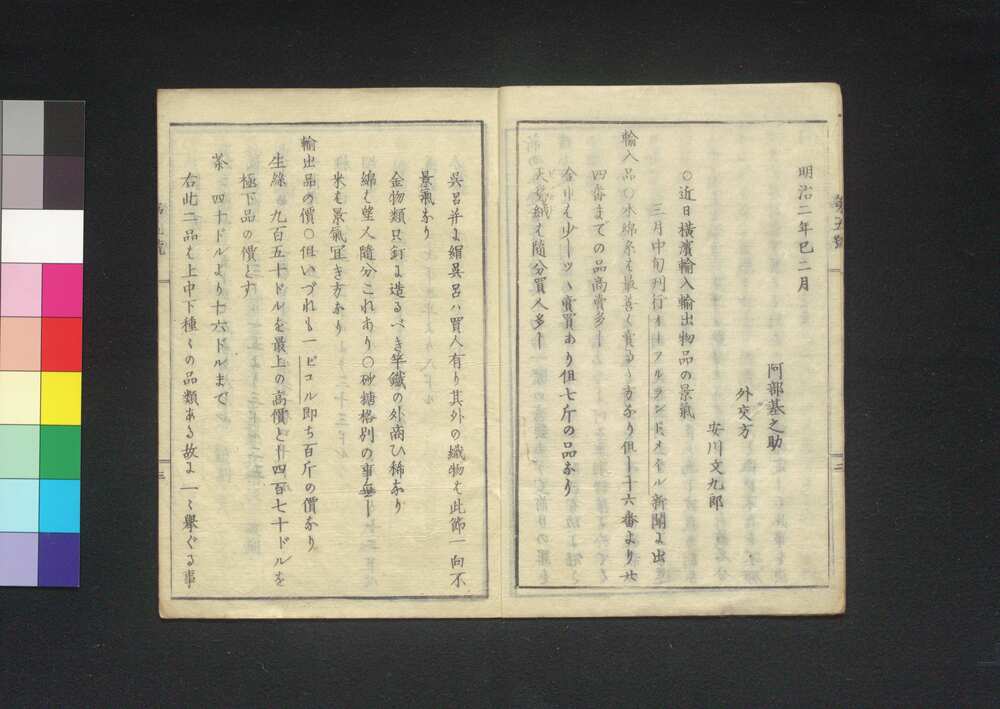 明治二年巳二月
阿部基之助
外交方
安川文九郎
○近日橫濱輸入輸出物品の景氣
三月中旬刋行オーフルランドメイル新聞よ出
輸入品○木綿糸も最善く賣るゝ方なり但し十六番より廿
四番までの品高賣多し
金巾も少しツヽ賣買あり但七斤の品なり
天鵞絨も隨分買人多し
呉呂并よ絹呉呂ハ買人有り其外の織物も此節一向不
景氣なり
金物類只釘よ造るべき竿鐵の外商ひ稀なり
綿も望人隨分これあり○砂糖格別の事無し
米も景氣宜き方なり
輸出品の價○但いづれも一ピコル即ち百斤の價なり
生絲 九百五十ドルを最上の高價とし四百七十ドルを
極下品の價とす
茶 四十ドルより十六ドルまで
右此二品も上中下種〻の品類ある故よ一〻擧ぐる事